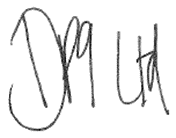 DM Ltd